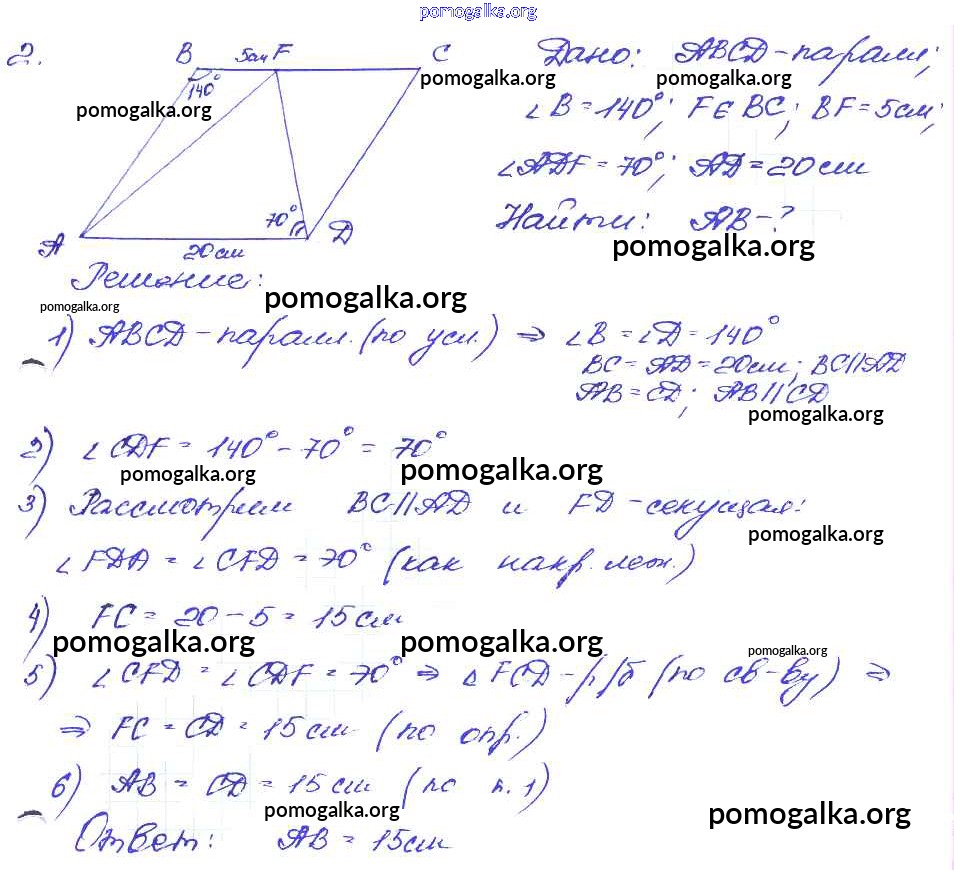 pomogalka.org
2.
B 5см F C
140°
pomogalka.org
70°
A 20см D
Дано: ABCD-паралл;
pomogalka.org pomogalka.org
∠B=140°; F∈BC; BF=5см;
∠ADF=70°; AD=20см
Найти: AB-?
pomogalka.org
Решение:
pomogalka.org
pomogalka.org
1) ABCD-паралл.(по усл.) ⇒ ∠B=∠D=140°
BC=AD=20см; BC||AD
AB=CD; AB||CD
pomogalka.org
2) ∠CDF=140°-70°=70°
pomogalka.org pomogalka.org
3) Рассмотрим BC||AD и FD-секущая:
pomogalka.org
∠FDA=∠CFD=70° (как накр. леж.)
4) FC=20-5=15см
pomogalka.org pomogalka.org pomogalka.org
5) ∠CFD=∠CDF=70° ⇒ △FCD-р/б (по св-ву) ⇒
⇒ FC=CD=15см (по опр.)
6) AB=CD=15см (по п.1)
pomogalka.org pomogalka.org
Ответ: AB=15см